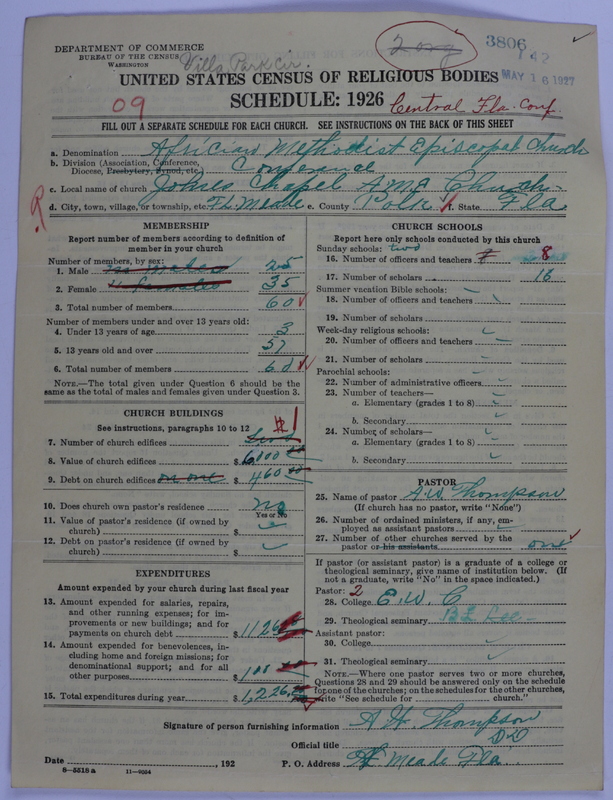 DEPARTMENT OF COMMERCE
BUREAU OF THE CENSUS
WASHINGTON
Villa Park Cir.
3806
142
MAY 16 1927
UNITED STATES CENSUS OF RELIGIOUS BODIES
09
SCHEDULE: 1926
Central Fla. Conf.
FILL OUT A SEPARATE SCHEDULE FOR EACH CHURCH. SEE INSTRUCTIONS ON THE BACK OF THIS SHEET
a. Denomination African Methodist Episcopal Church
b. Division (Association, Conference, Diocese, Presbytery, Synod, etc.)
c. Local name of church Johns Chapel AME Church
d. City, town, village, or township, etc. Ft. Meade e. County Polk f. State Fla
MEMBERSHIP
Report number of members according to definition of member in your church
Number of members, by sex:
1. Male 25
2. Female 35
3. Total number of members 60
Number of members under and over 13 years old:
4. Under 13 years of age 3
5. 13 years old and over 57
6. Total number of members 60
NOTE.—The total given under Question 6 should be the same as the total of males and females given under Question 3.
CHURCH BUILDINGS
See instructions, paragraphs 10 to 12
7. Number of church edifices 1
8. Value of church edifices $ 6,000 00
9. Debt on church edifices $ 460 00
10. Does church own pastor's residence no
Yes or No
11. Value of pastor's residence (if owned by church) $
12. Debt on pastor's residence (if owned by church) $
EXPENDITURES
Amount expended by your church during last fiscal year
13. Amount expended for salaries, repairs, and other running expenses; for improvements or new buildings; and for payments on church debt $ 1126
14. Amount expended for benevolences, including home and foreign missions; for denominational support; and for all other purposes $ 100 00
15. Total expenditures during year $ 1,226.
CHURCH SCHOOLS
Report here only schools conducted by this church
Sunday schools: two
16. Number of officers and teachers 8
17. Number of scholars 16
Summer vacation Bible schools:
18. Number of officers and teachers
19. Number of scholars
Week-day religious schools:
20. Number of officers and teachers
21. Number of scholars
Parochial schools:
22. Number of administrative officers
23. Number of teachers—
a. Elementary (grades 1 to 8)
b. Secondary
24. Number of scholars—
a. Elementary (grades 1 to 8)
b. Secondary
PASTOR
25. Name of pastor A. W. Thompson
(If church has no pastor, write "None")
26. Number of ordained ministers, if any, employed as assistant pastors
27. Number of other churches served by the pastor or his assistants one
If pastor (or assistant pastor) is a graduate of a college or theological seminary, give name of institution below. (If not a graduate, write "No" in the space indicated.)
Pastor: 2
28. College E. W. C
29. Theological seminary B L Lee
Assistant pastor:
30. College
31. Theological seminary
NOTE.—Where one pastor serves two or more churches, Questions 28 and 29 should be answered only on the schedule for one of the churches; on the schedules for the other churches, write "See schedule for church."
Signature of person furnishing information A. W. Thompson
Official title DD
Date , 192 P. O. Address Ft Meade Fla.
8—5518 a 11—9034